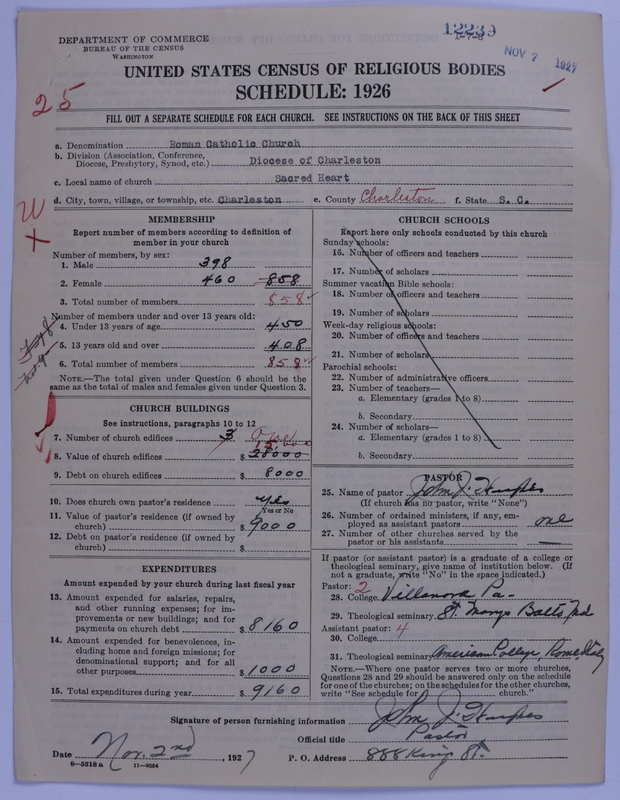 12239
1-7-8
NOV 7 1927
DEPARTMENT OF COMMERCE
BUREAU OF THE CENSUS
WASHINGTON
UNITED STATES CENSUS OF RELIGIOUS BODIES
SCHEDULE: 1926
25
FILL OUT A SEPARATE SCHEDULE FOR EACH CHURCH. SEE INSTRUCTIONS ON THE BACK OF THIS SHEET
a. Denomination Roman Catholic Church
b. Division (Association, Conference, Diocese, Presbytery, Synod, etc.) Diocese of Charleston
c. Local name of church Sacred Heart
d. City, town, village, or township, etc. Charleston e. County Charleston f. State S. C.
W
X
MEMBERSHIP
Report number of members according to definition of
member in your church
Number of members, by sex:
1. Male 398
2. Female 460 858
3. Total number of members 858
Number of members under and over 13 years old:
4. Under 13 years of age 450
5. 13 years old and over 408
6. Total number of members 858
NOTE.—The total given under Question 6 should be the
same as the total of males and females given under Question 3.
CHURCH BUILDINGS
See instructions, paragraphs 10 to 12
7. Number of church edifices 3 One
8. Value of church edifices $ 38000
9. Debt on church edifices $ 8000
10. Does church own pastor's residence yes
Yes or No
11. Value of pastor's residence (if owned by
church) $ 9000
12. Debt on pastor's residence (if owned by
church) $
EXPENDITURES
Amount expended by your church during last fiscal year
13. Amount expended for salaries, repairs,
and other running expenses; for im-
provements or new buildings; and for
payments on church debt $ 8160
14. Amount expended for benevolences, in-
cluding home and foreign missions; for
denominational support; and for all
other purposes $ 1000
15. Total expenditures during year $ 9160
CHURCH SCHOOLS
Report here only schools conducted by this church
Sunday schools:
16. Number of officers and teachers
17. Number of scholars
Summer vacation Bible schools:
18. Number of officers and teachers
19. Number of scholars
Week-day religious schools:
20. Number of officers and teachers
21. Number of scholars
Parochial schools:
22. Number of administrative officers
23. Number of teachers—
a. Elementary (grades 1 to 8)
b. Secondary
24. Number of scholars—
a. Elementary (grades 1 to 8)
b. Secondary
PASTOR
25. Name of pastor John J. Hughes
(If church has no pastor, write "None")
26. Number of ordained ministers, if any, em-
ployed as assistant pastors one
27. Number of other churches served by the
pastor or his assistants —
If pastor (or assistant pastor) is a graduate of a college or
theological seminary, give name of institution below. (If
not a graduate, write "No" in the space indicated.)
Pastor: 2
28. College Villanova Pa.
29. Theological seminary St. Marys Balto, Md
Assistant pastor: 4
30. College
31. Theological seminary American College, Rome, Italy
NOTE.—Where one pastor serves two or more churches,
Questions 28 and 29 should be answered only on the schedule
for one of the churches; on the schedules for the other churches,
write "See schedule for church."
Signature of person furnishing information John J. Hughes
Official title Pastor
Date Nov. 2nd, 1927 P. O. Address 888 King St.
8-5518 a 11-9034